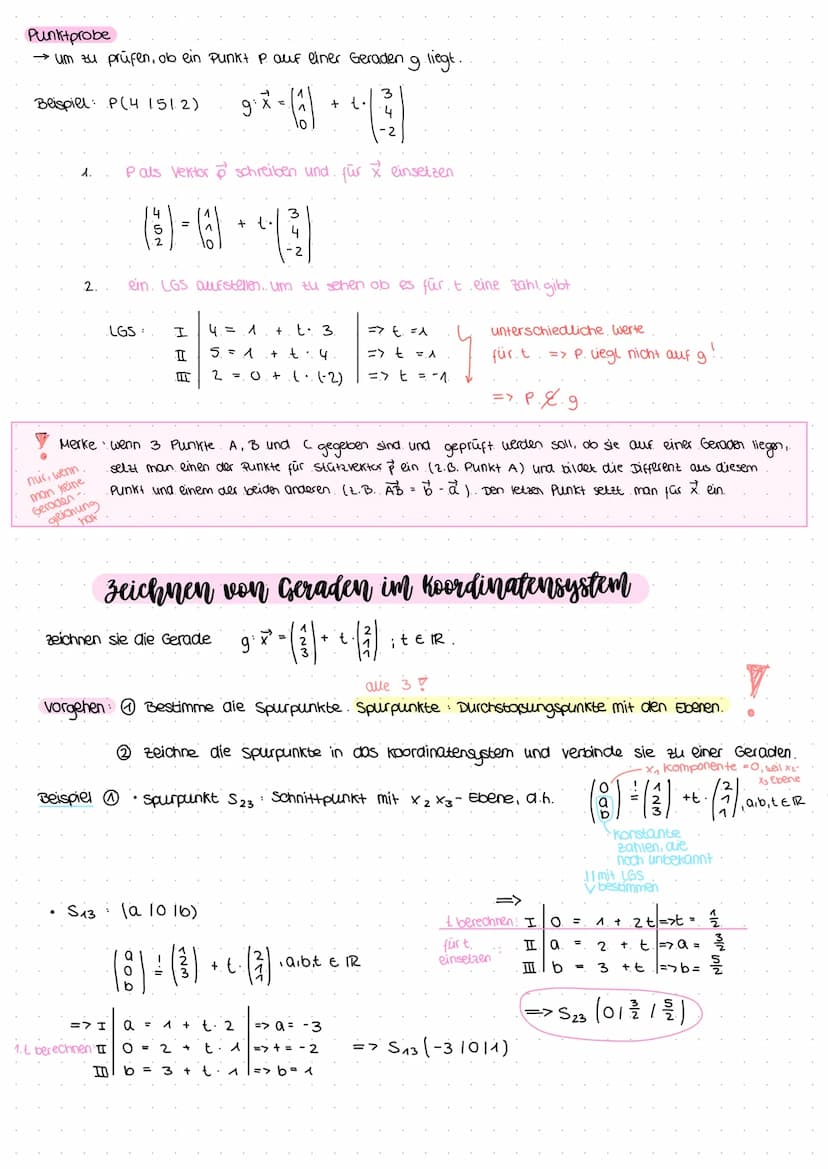 Punktprobe
→ um zu prüfen, ob ein Punkt P auf einer Geraden g liegt.
Beispiel: P(4 | 5 | 2)    g: x⃗ = (1 1 0) + t · (3 4 -2)
1. P als Vektor p⃗ schreiben und für x⃗ einsetzen
(4 5 2) = (1 1 0) + t · (3 4 -2)
2. ein LGS aufstellen, um zu sehen ob es für t eine Zahl gibt
LGS: I | 4 = 1 + t · 3 | => t = 1    unterschiedliche Werte
II | 5 = 1 + t · 4 | => t = 1    für t => P liegt nicht auf g!
III | 2 = 0 + t · (-2) | => t = -1
=> P ∉ g
! Merke: wenn 3 Punkte A, B und C gegeben sind und geprüft werden soll, ob sie auf einer Geraden liegen,
setzt man einen der Punkte für Stützvektor p⃗ ein (z.B. Punkt A) und bildet die Different aus diesem
Punkt und einem der beiden anderen (z.B. AB⃗ = b⃗ - a⃗). Den letzen Punkt setzt man für x⃗ ein
nur, wenn
man keine
Geraden-
gleichung
hat
Zeichnen von Geraden im Koordinatensystem
zeichnen sie die Gerade    g: x⃗ = (1 2 3) + t · (2 1 1) ; t ∈ ℝ.
alle 3 !
Vorgehen: ① Bestimme die Spurpunkte. Spurpunkte: Durchstoßungspunkte mit den Ebenen. !
② zeichne die Spurpunkte in das Koordinatensystem und verbinde sie zu einer Geraden.
x₁ Komponente = 0, weil x₂-
x₃ Ebene
Beispiel ① • Spurpunkt S₂₃: Schnittpunkt mit x₂ x₃ - Ebene, d.h.    (0 a b) != (1 2 3) + t · (2 1 1), a,b,t ∈ ℝ
Konstante
zahlen, die
noch unbekannt
mit LGS
bestimmen
• S₁₃: (a | 0 | b)
(a 0 b) != (1 2 3) + t · (2 1 1), a,b,t ∈ ℝ
=> I | a = 1 + t · 2 | => a = -3
1. t berechnen II | 0 = 2 + t · 1 | => t = -2    => S₁₃ (-3 | 0 | 1)
III | b = 3 + t · 1 | => b = 1
=>
t berechnen: I | 0 = 1 + 2t | => t = 1/2
für t II | a = 2 + t | => a = 3/2
einsetzen III | b = 3 + t | => b = 5/2
=> S₂₃ (0 | 3/2 | 5/2)